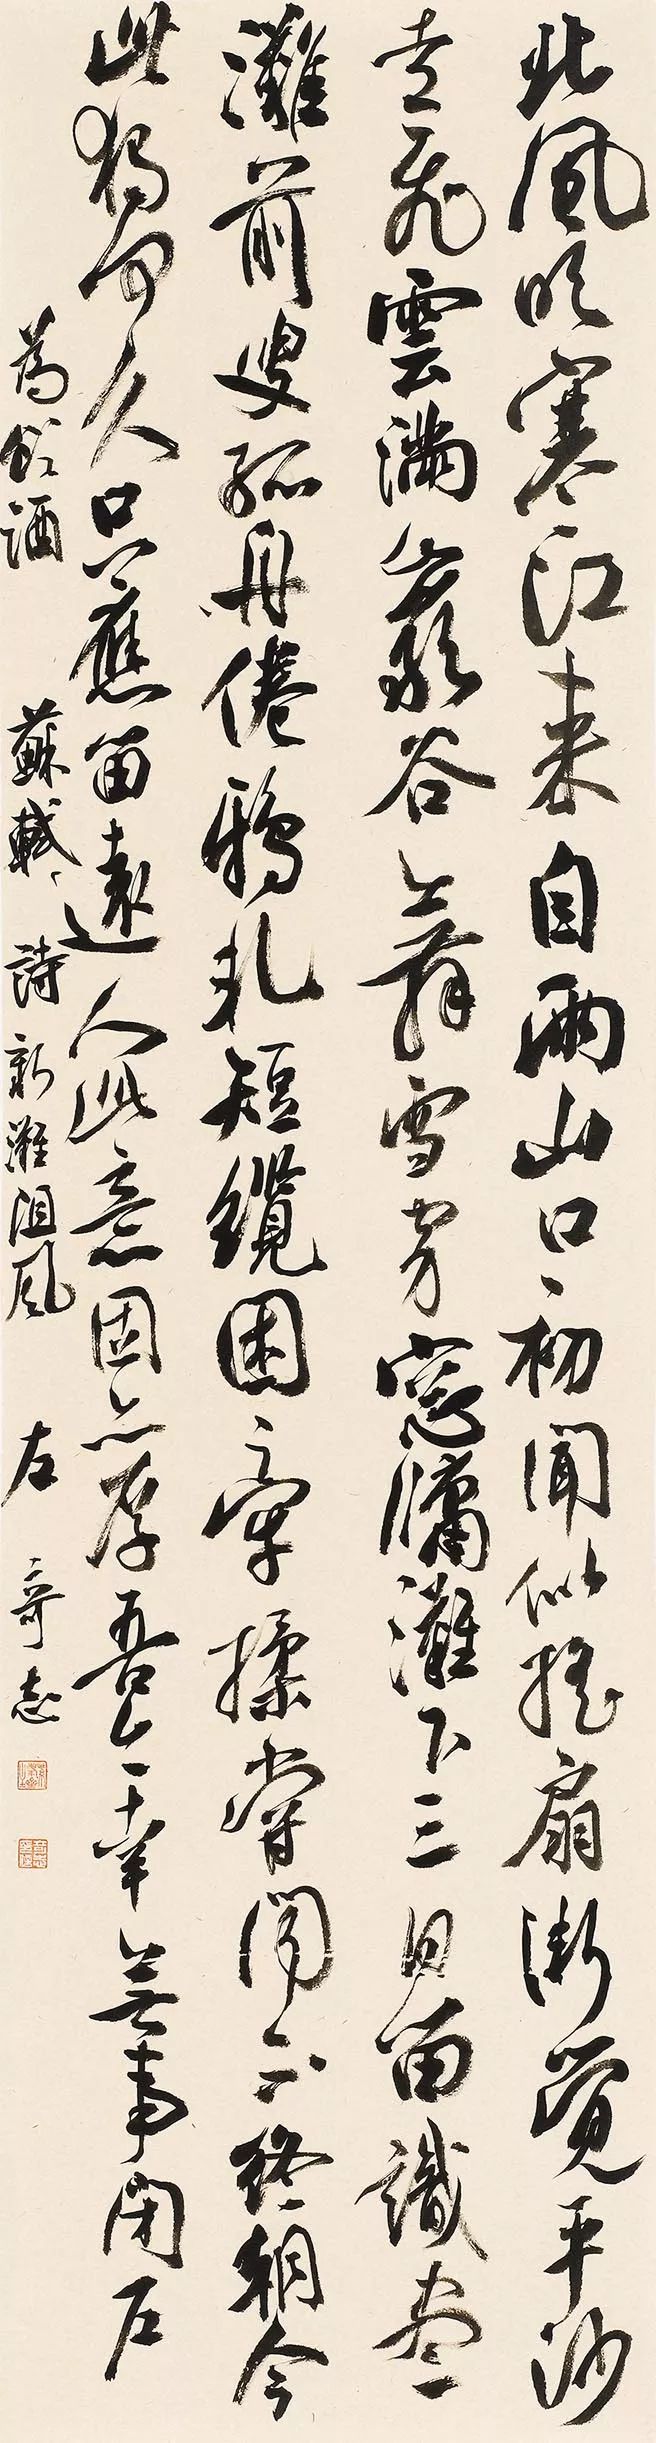 北風吹寒江来自兩山口初聞似摇扇漸覺平沙
走飛雲滿巖谷舞雪穿窓牖灘下三日留識盡
灘前叟孤舟倦鴉軋短纜困牽揉嘗聞不終朝今
此獨何久只應留遠人此意固亦厚吾今幸無事閉户
為飲酒 蘇軾詩 新灘阻風 左奇志